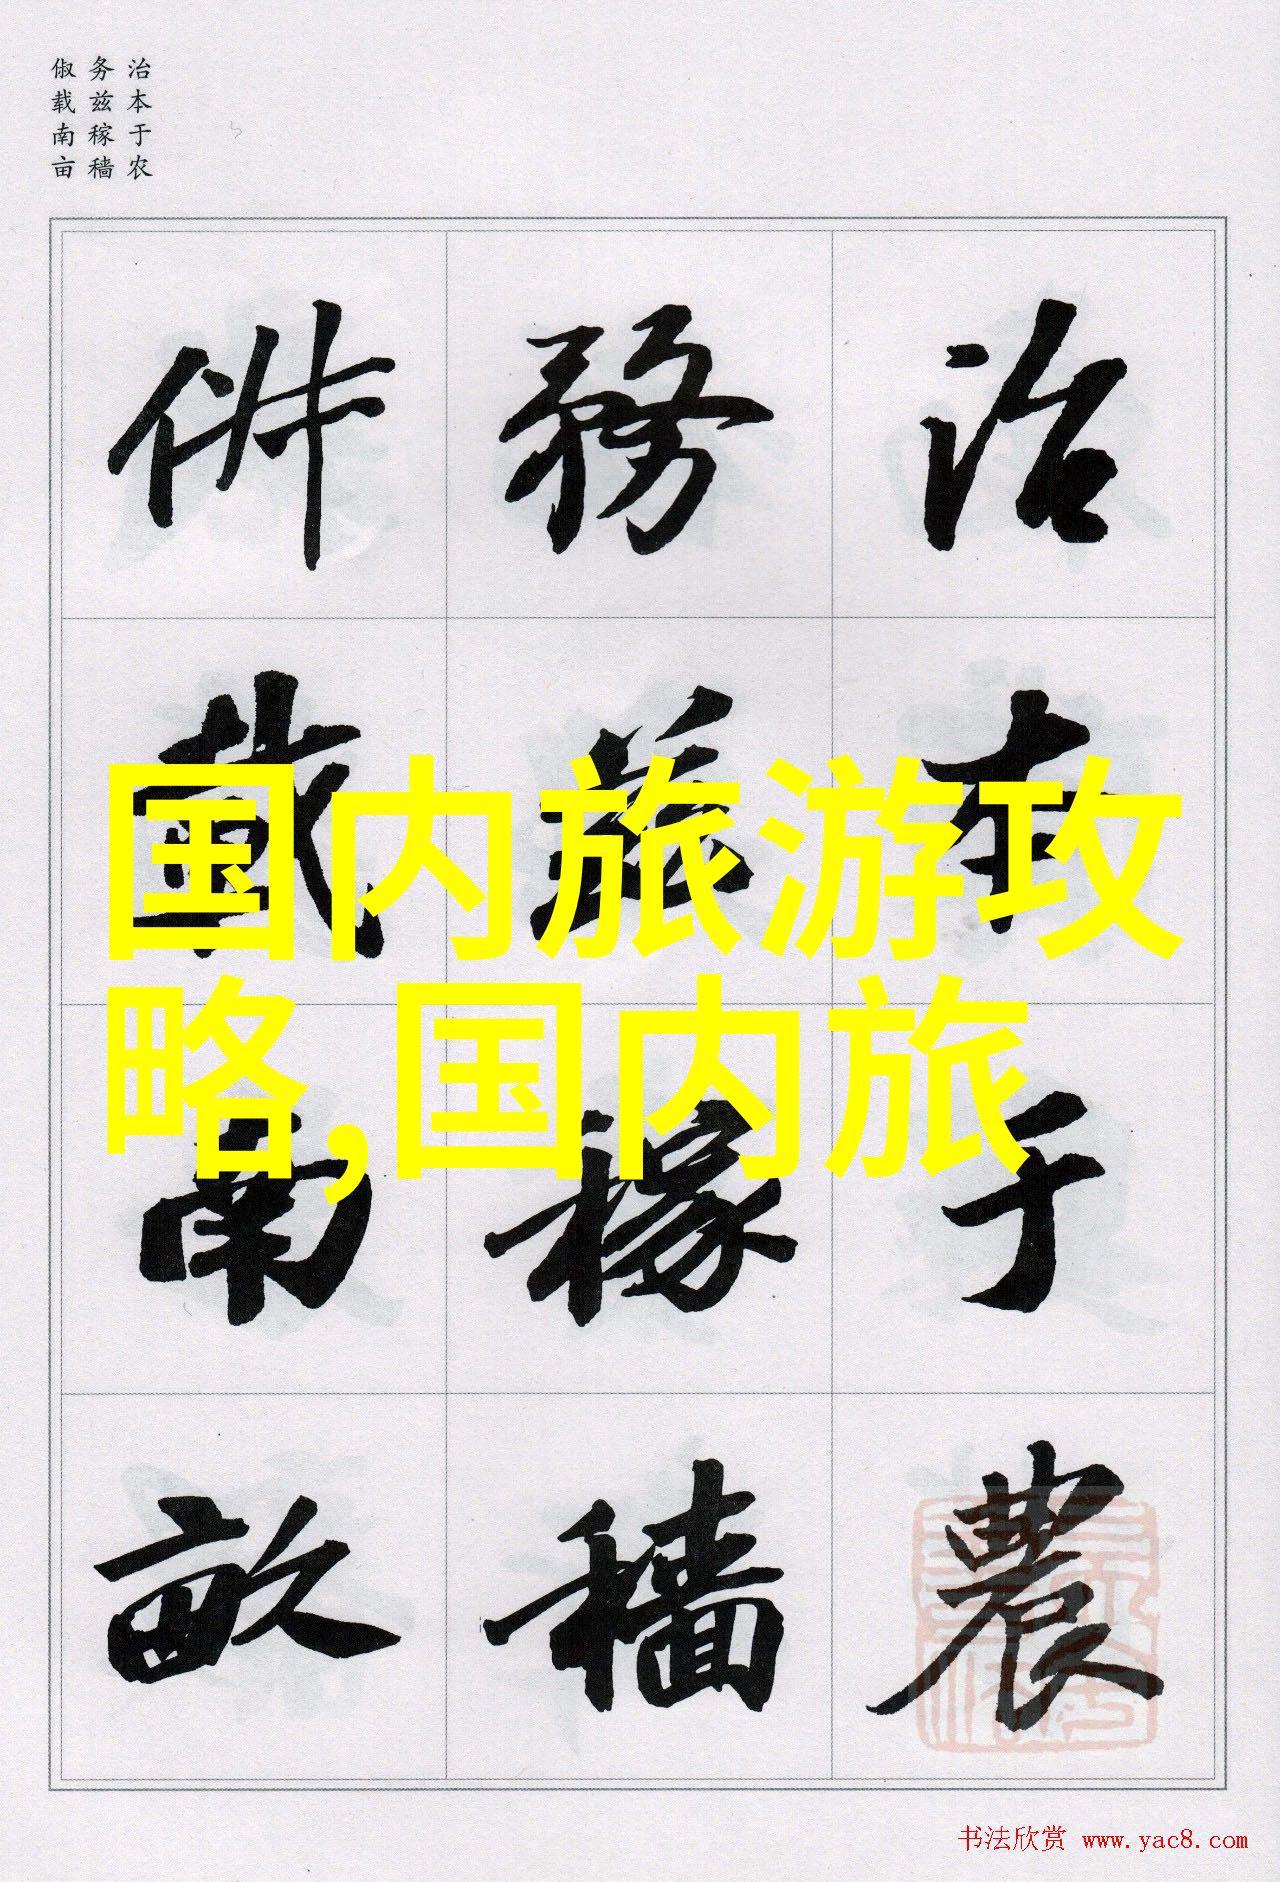 治本于农
务兹稼穑
俶载南亩
治本于農
務茲稼穡
俶載南畝
国内旅游攻
略,国内旅
书法欣赏 www.yac8.com